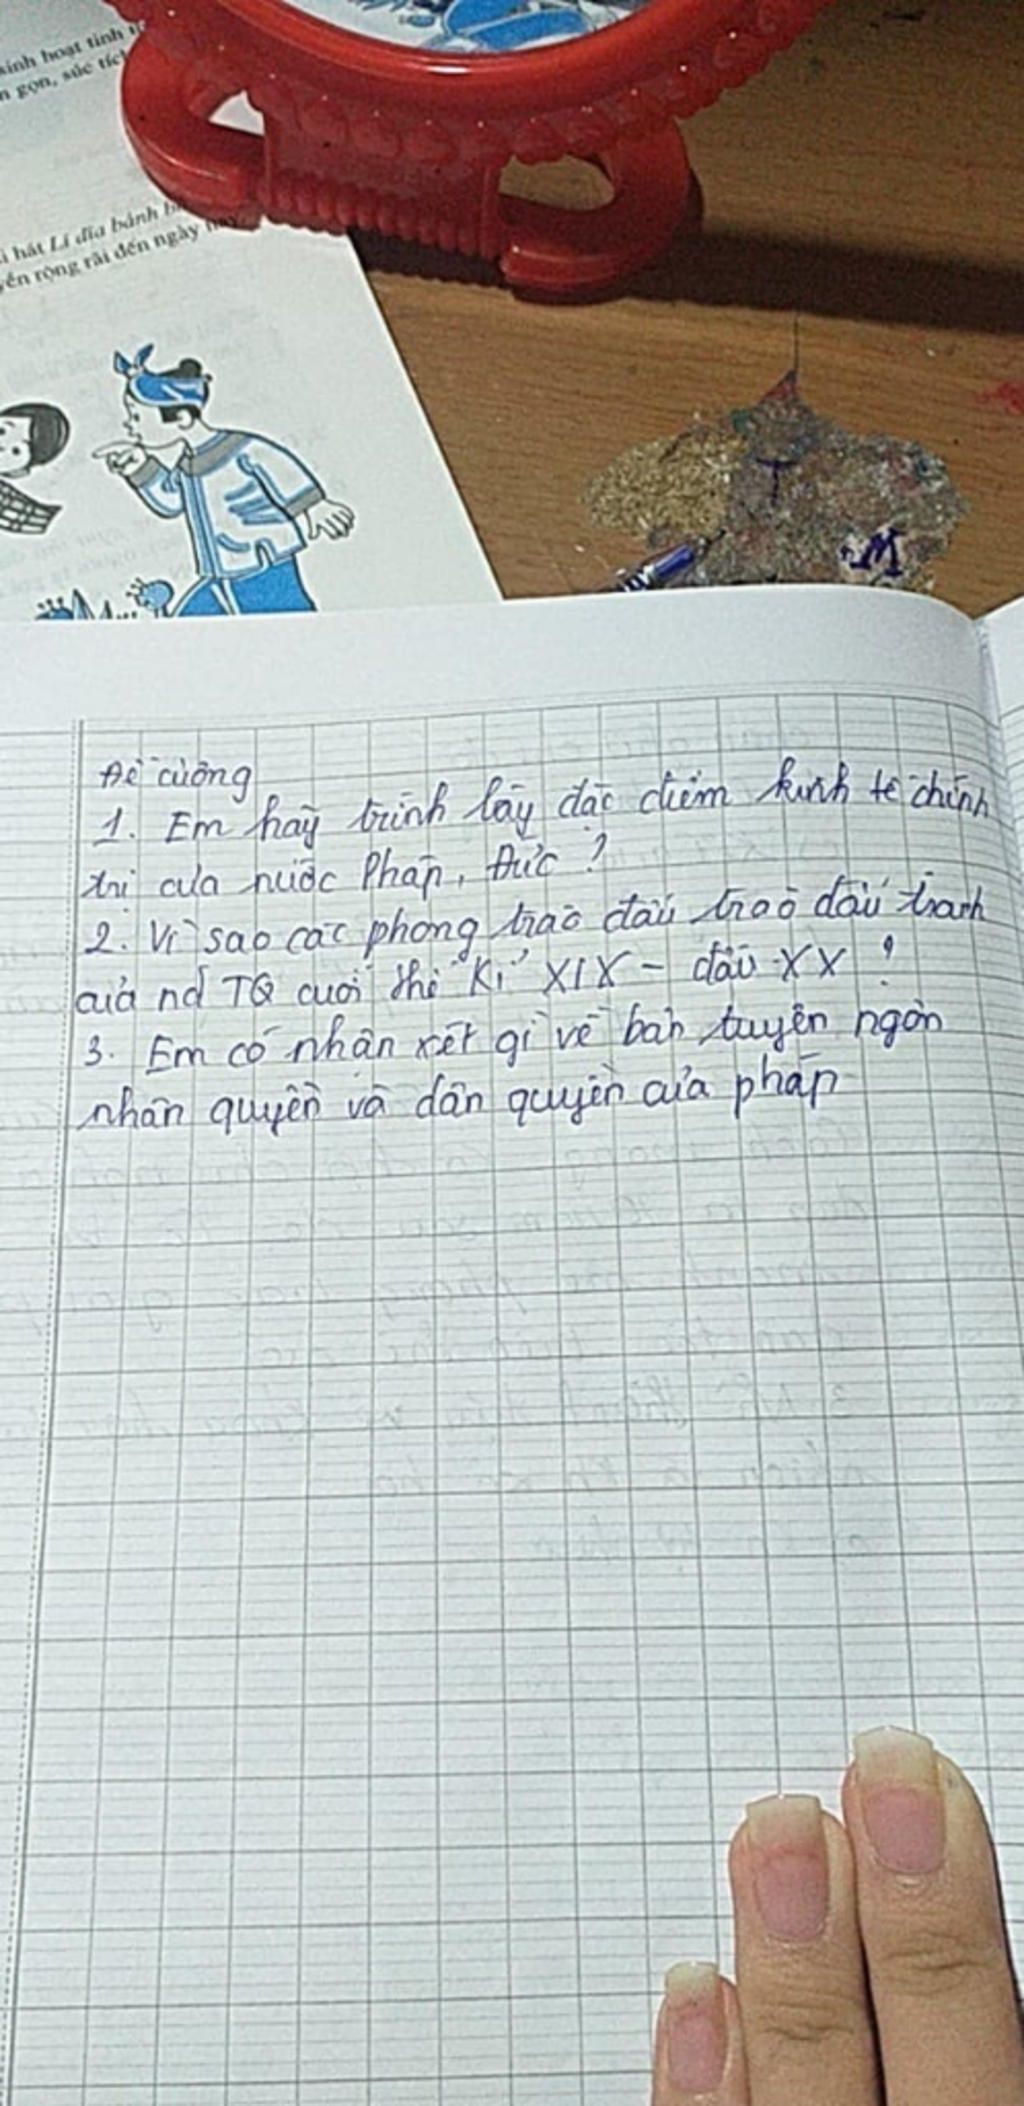 sinh hoạt tinh
n gọn, súc tích
i hát Lí đĩa bánh b
yền rộng rãi đến ngày nay
T
M
Đề cường
1. Em hãy trình lãy đặc điểm kinh tế chính
trị của nước Pháp, Đức ?
2. Vì sao các phong trào đấu traò đấu tranh
của nd TQ cuối thế kỉ XIX - đầu XX ?
3. Em có nhận xét gì về bản tuyên ngôn
nhân quyền và dân quyền của pháp